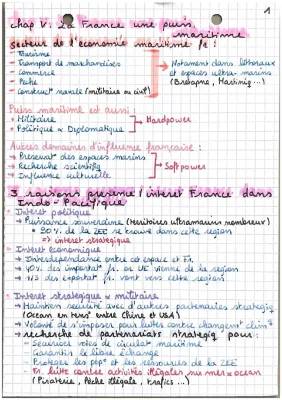 1
chap V. La France une puiss
maritime
secteur de l'économie maritime fr :
- Tourisme
- Transport de marchandises
- Commerce
- Pêche
- Construct° navale (militaire ou civil)
Notament dans littoraux
et espaces ultra-marins
(Bretagne, Martiniq ...)
Puiss maritime est aussi :
• Militaire
• Politique & Diplomatique
Hardpower
Autres domaines d'influence française :
→ Préservat° des espaces marins
→ Recherche scientifiq
→ Influence culturelle
Softpower
3 raisons présence / intérêt France dans
Indo-Pacifique
• Intérêt politique
→ Puissance souveraine (territoires ultramarins membreux)
• 80% de la ZEE se trouve dans cette région
=> intérêt stratégique
• Intérêt économique
→ Interdépendance entre cet espace et Fr.
→ 40% des importat° fr. or UE vienne de la région
→ 1/3 des exportat° fr. vont vers cette région
• Intérêt stratégique & militaire
→ Maintien relat° avec d'autres partenaires stratégiq
(Océan, en tens° entre Chine et USA)
→ Volonté de s'imposer pour lutter contre changem^t clim^t
→ recherche de partenariat stratégiq pour :
- Sécuriser voies de circulat° maritime
- Garantir le libre échange
- Protéger les pop° et les ressources de la ZEE
- En lutte contre activités illégales sur mer & océan
(Piraterie, Pêche illégale, trafics ...)